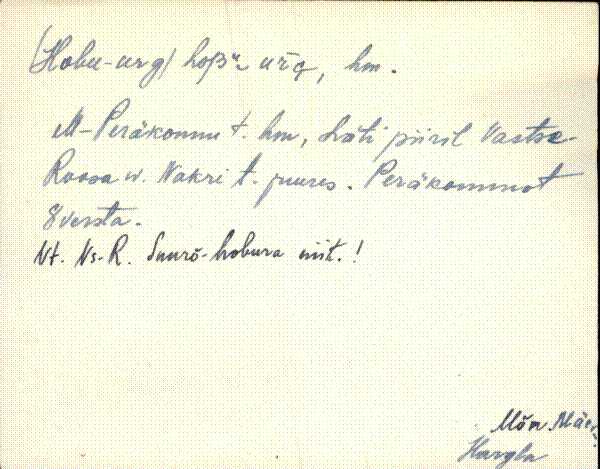 (Hobu-urg) hoβu~ ūrg, hm.
M-Peräkonnu t. hm, Läti piiril Vastse-
Roosa w. Nakri t. juures. Peräkonnust
8 versta.
Vt. Vs-R. Suurõ-hobura niit.!
Mõn. Mäe
Hargla